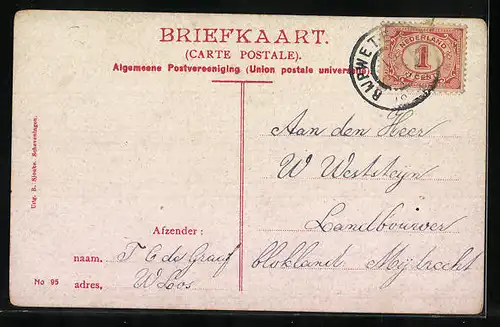 BRIEFKAART.
(CARTE POSTALE).
Algemeene Postvereeniging (Union postale universelle)
NEDERLAND
1
CENT
Aan den Heer
W Weststeijn
Landbouwer
blokland Mijdrecht
Afzender:
naam. T C de Graaf
adres, W Loos
No 95
Uitg. B. Sjouke. Scheveningen.